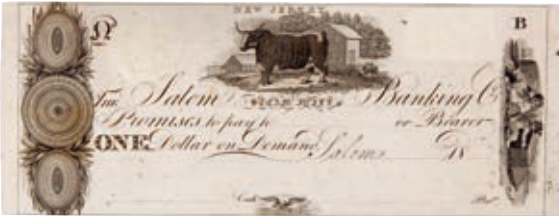 NEW JERSEY
B
The Salem STEAM MILL Banking Co
Promises to pay to or Bearer
ONE Dollar on Demand Salem 18
Cash Pres